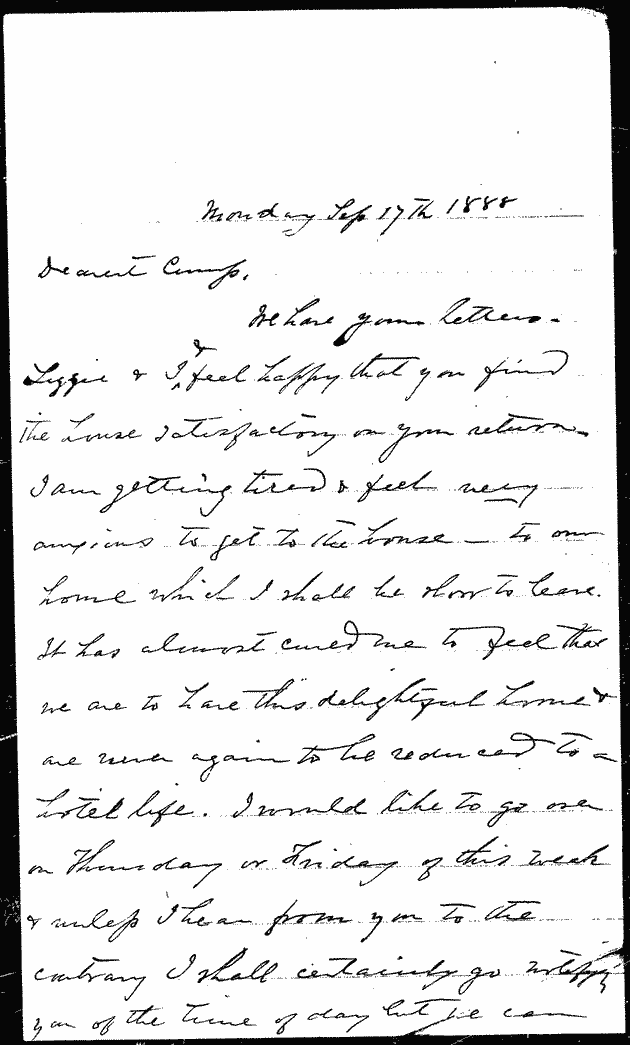 Monday Sep 17th 1888
Dearest Cump.
We have your letters.
Lizzie & I, & feel happy that you find
the house satisfactory on your return.
I am getting tired & feel very
anxious to get to the house — to our
home which I shall be slow to leave.
It has almost cured me to feel that
we are to have this delightful home &
are never again to be reduced to a
hotel life. I would like to go over
on Thursday or Friday of this week
& unless I hear from you to the
contrary I shall certainly go notifying
you of the time of day but we can